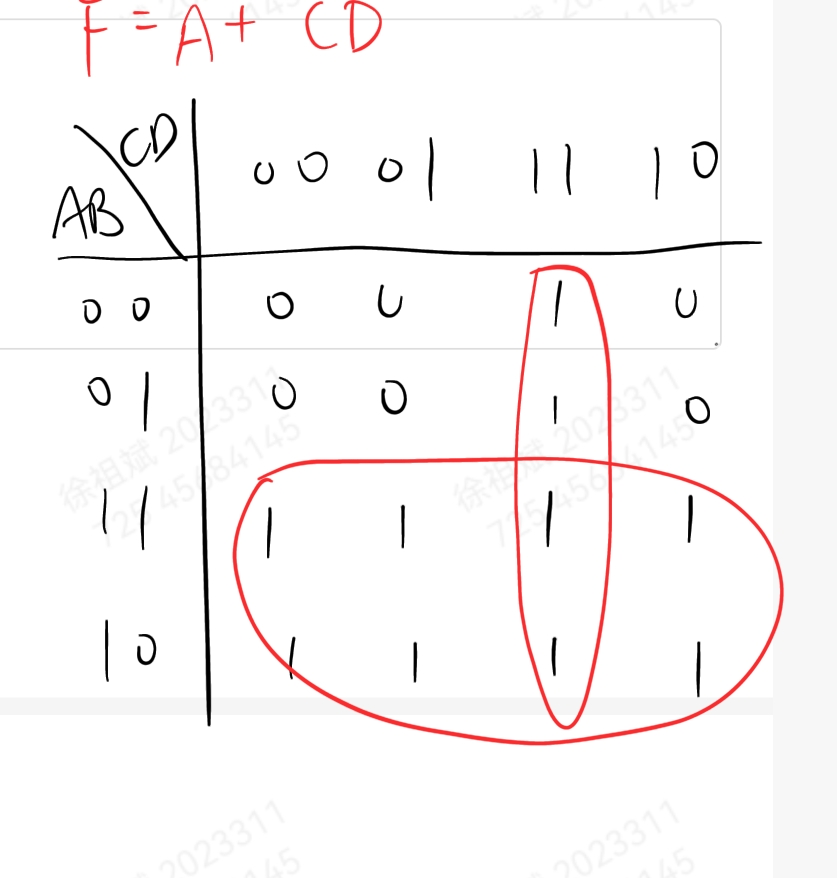 F = A + CD
CD
AB
00 01 11 10
00 0 0 1 0
01 0 0 1 0
11 1 1 1 1
10 1 1 1 1
徐祖斌 2023311
725145684145
徐祖斌 2023311
2023311
145
2023311
145